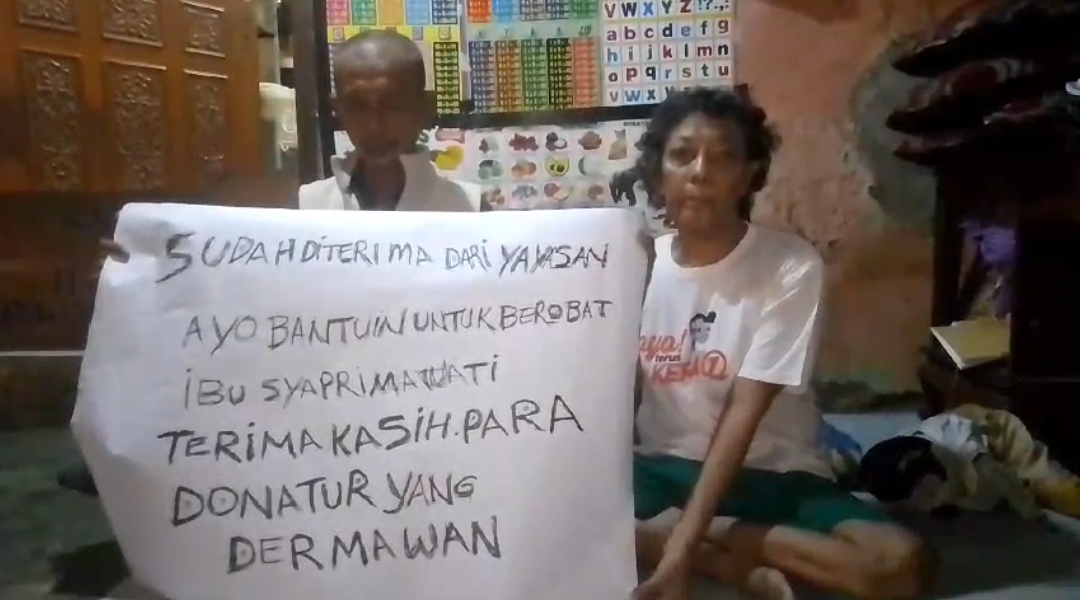 V W X Y Z !?.,:
a b c d e f g
h i j k l m n
o p q r s t u
v w x y
SUDAH DITERIMA DARI YAYASAN
AYO BANTUIN UNTUK BEROBAT
IBU SYAPRIMAWATI
TERIMA KASIH. PARA
DONATUR YANG
DERMAWAN
terus